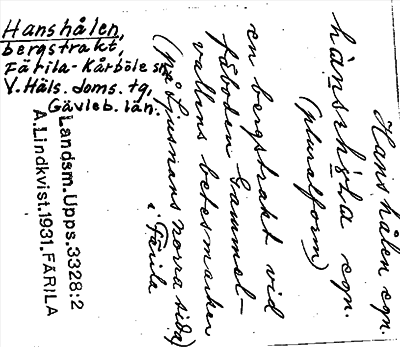 Hanshålen,
bergstrakt,
Färila-Kårböle sn,
V. Häls. doms. tg,
Gävleb. län.
Landsm. Upps. 3328:2
A. Lindkvist. 1931. FÄRILA
Hans hålen egn.
hánsrhòla egn.
(pluralform)
en bergstrakt vid
fäboden Gammel-
vallens betesmarker
(på Ljusnans norra sida)
i Färila